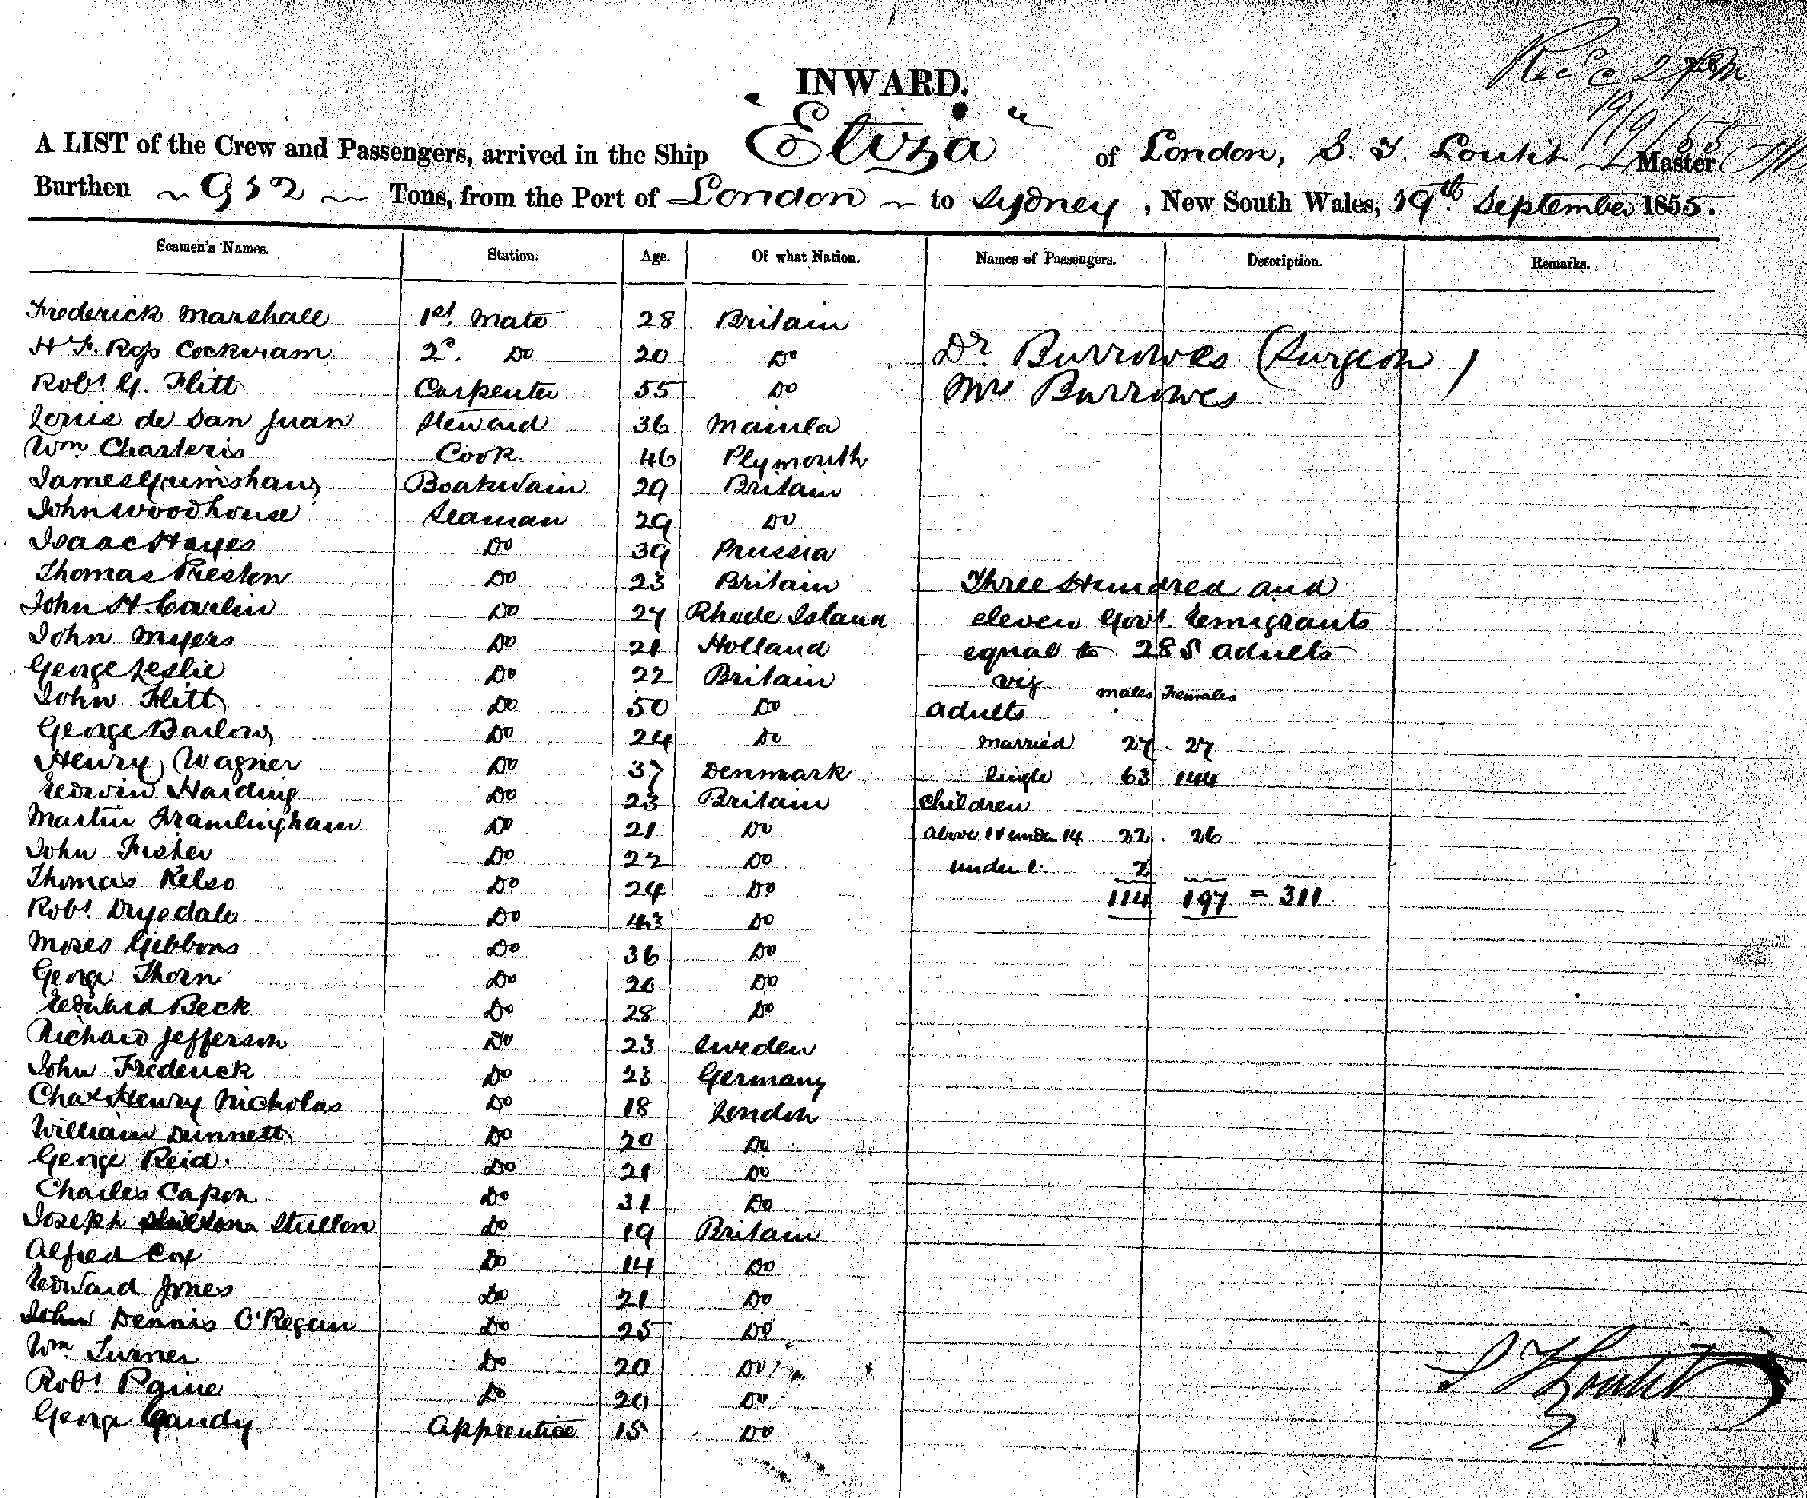 Recd 2 pm
19/9/55
INWARD.
A LIST of the Crew and Passengers, arrived in the Ship "Eliza" of London, S. T. Loutit Master
Burthen 932 Tons, from the Port of London to Sydney, New South Wales, 19th September 1855.
Seamen's Names. Station. Age. Of what Nation. Names of Passengers. Description. Remarks.
Frederick Marshall 1st Mate 28 Britain
H F. Ross Cockeram 2d. Do 20 Do Dr Burrowes (Surgeon)
Robt G. Flitt Carpenter 55 Do Mrs Burrowes
Louis de San Juan Steward 36 Manila
Wm Charteris Cook 46 Plymouth
James Grimshaw Boatswain 29 Britain
John Woodhouse Seaman 29 Do
Isaac Hayes Do 39 Prussia
Thomas Preston Do 23 Britain Three Hundred and
John H Carlin Do 27 Rhode Island eleven Govt. Emigrants
John Myers Do 21 Holland equal to 285 adults
George Leslie Do 22 Britain viz Males Females
John Flitt Do 50 Do Adults
George Barlow Do 24 Do Married 27 27
Henry Wagner Do 37 Denmark Single 63 144
Edwin Harding Do 23 Britain Children
Martin Framlingham Do 21 Do above 1 & under 14 22 26
John Fisher Do 22 Do under 1. 2
Thomas Kelso Do 24 Do 114 197 = 311
Robt Drysdale Do 43 Do
Moses Gibbons Do 36 Do
George Thorn Do 26 Do
Edward Beck Do 28 Do
Richard Jefferson Do 23 Sweden
John Frederick Do 23 Germany
Chas Henry Nicholas Do 18 London
William Dinnett Do 20 Do
George Reid Do 21 Do
Charles Capon Do 31 Do
Joseph Stutton Do 19 Britain
Alfred Cox Do 14 Do
Edward Jones Do 21 Do
John Dennis O'Regan Do 25 Do
Wm Turner Do 20 Do
Robt Paine Do 20 Do
George Gandy Apprentice 15 Do
S T Loutit